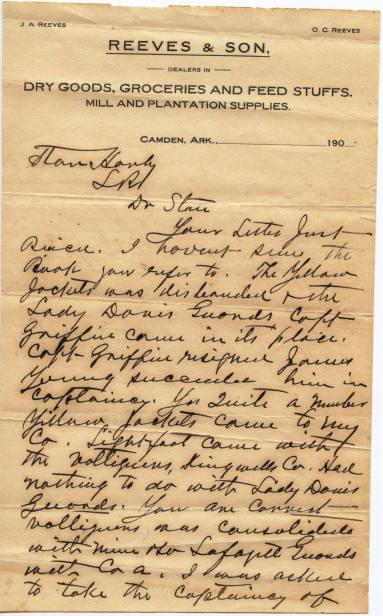 J. A. REEVES O. C. REEVES
REEVES & SON,
DEALERS IN
DRY GOODS, GROCERIES AND FEED STUFFS.
MILL AND PLANTATION SUPPLIES.
CAMDEN, ARK., 190
Stan Harly
LRk
Dr Stan
Your Letter Just
Recied. I havent seen the
Book you refer to. The Yellow
Jackets was disbanded & the
Lady Davis Guards Capt
Griffin came in its place.
Capt Griffin resigned James
Young succeeded him in
captaincy. Yes Quite a number
Yellow Jackets came to my
Co. Lightfoot came with
the volliguers, Kingwells Co. Had
nothing to do with Lady Davis
Guards. You are correct
volliguers was consolidated
with mine & Lafayett Guards
with Co A. I was asked
to take the captaincy of